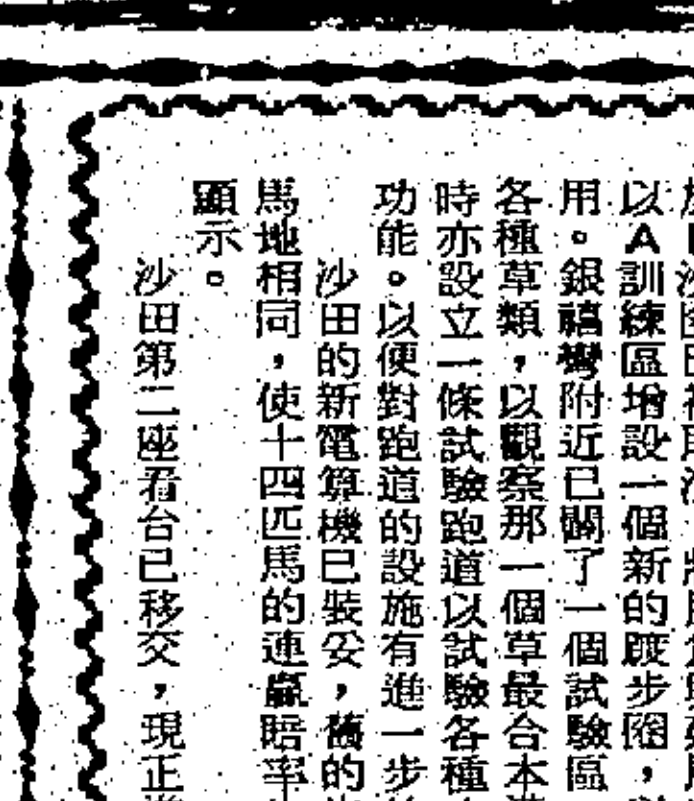 以A訓練區增設一個新的踱步圈，
用。銀禧灣附近已闢了一個試驗區
各種草類，以觀察那一個草最合本
時亦設立一條試驗跑道以試驗各種
功能。以便對跑道的設施有進一步
沙田的新電算機已裝妥，舊的
馬地相同，使十四匹馬的連贏賠率
顯示。
沙田第二座看台已移交，現正